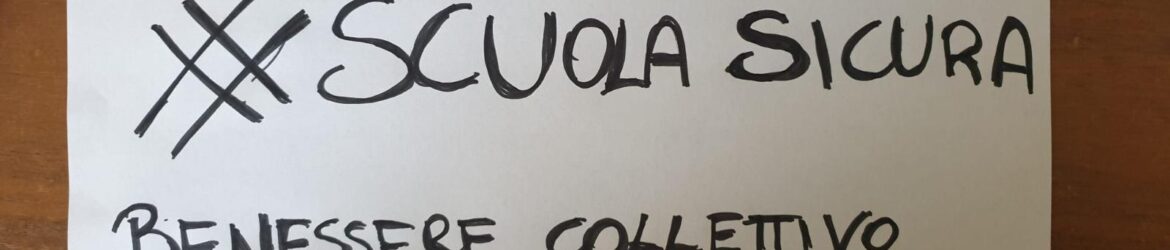 # SCUOLA SICURA
BENESSERE COLLETTIVO